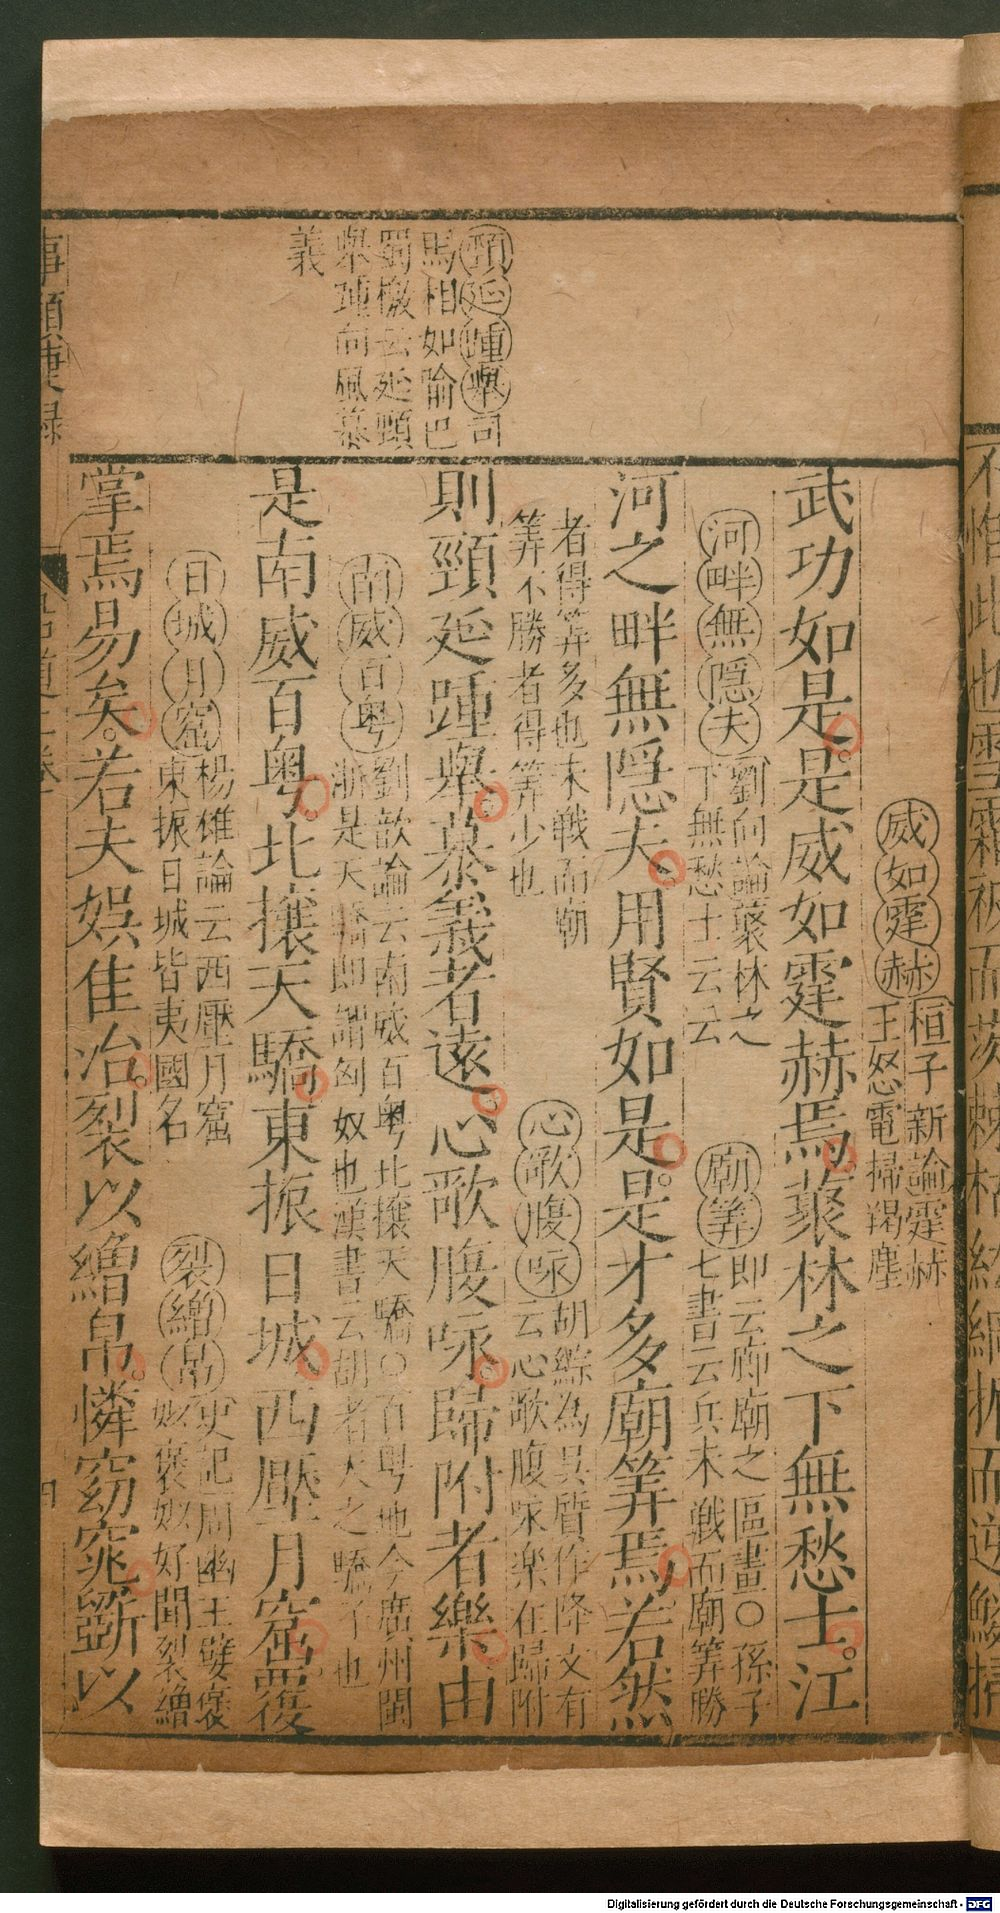 頸延踵舉司
馬相如喻巴
蜀檄云延頸
舉踵向風慕
義
威如霆赫桓子新論霆赫
王怒電掃羯塵
武功如是是威如霆赫焉蘂林之下無愁士江
河畔無隠夫劉向論蘂林之
下無愁士云云
廟筭即云廊廟之區畫〇孫子
七書云兵未戦而廟筭勝
河之畔無隠夫用賢如是是才多廟筭焉若然
者得筭多也未戦而廟
筭不勝者得筭少也
心歌腹咏胡綜為吳質作降文有
云心歌腹咏楽在歸附
則頸延踵舉慕義者遠心歌腹咏歸附者樂由
南威百粤劉歆論云南威百粤北攘天驕〇百粤地今廣州閩
浙是天驕即謂匈奴也漢書云胡者天之驕子也
是南威百粤北攘天驕東振日城西壓月窟覆
日城月窟楊雄論云西壓月窟
東振日城皆夷國名
裂繒帛史記周幽王嬖褒
姒褒姒好聞裂繒
掌焉易矣若夫娯隹冶裂以繒帛憐窈窕斲以
事類捷録
四
不惟此也雪霜被而茨棘枯紘綱振而逆鯪掃
Digitalisierung gefördert durch die Deutsche Forschungsgemeinschaft - DFG